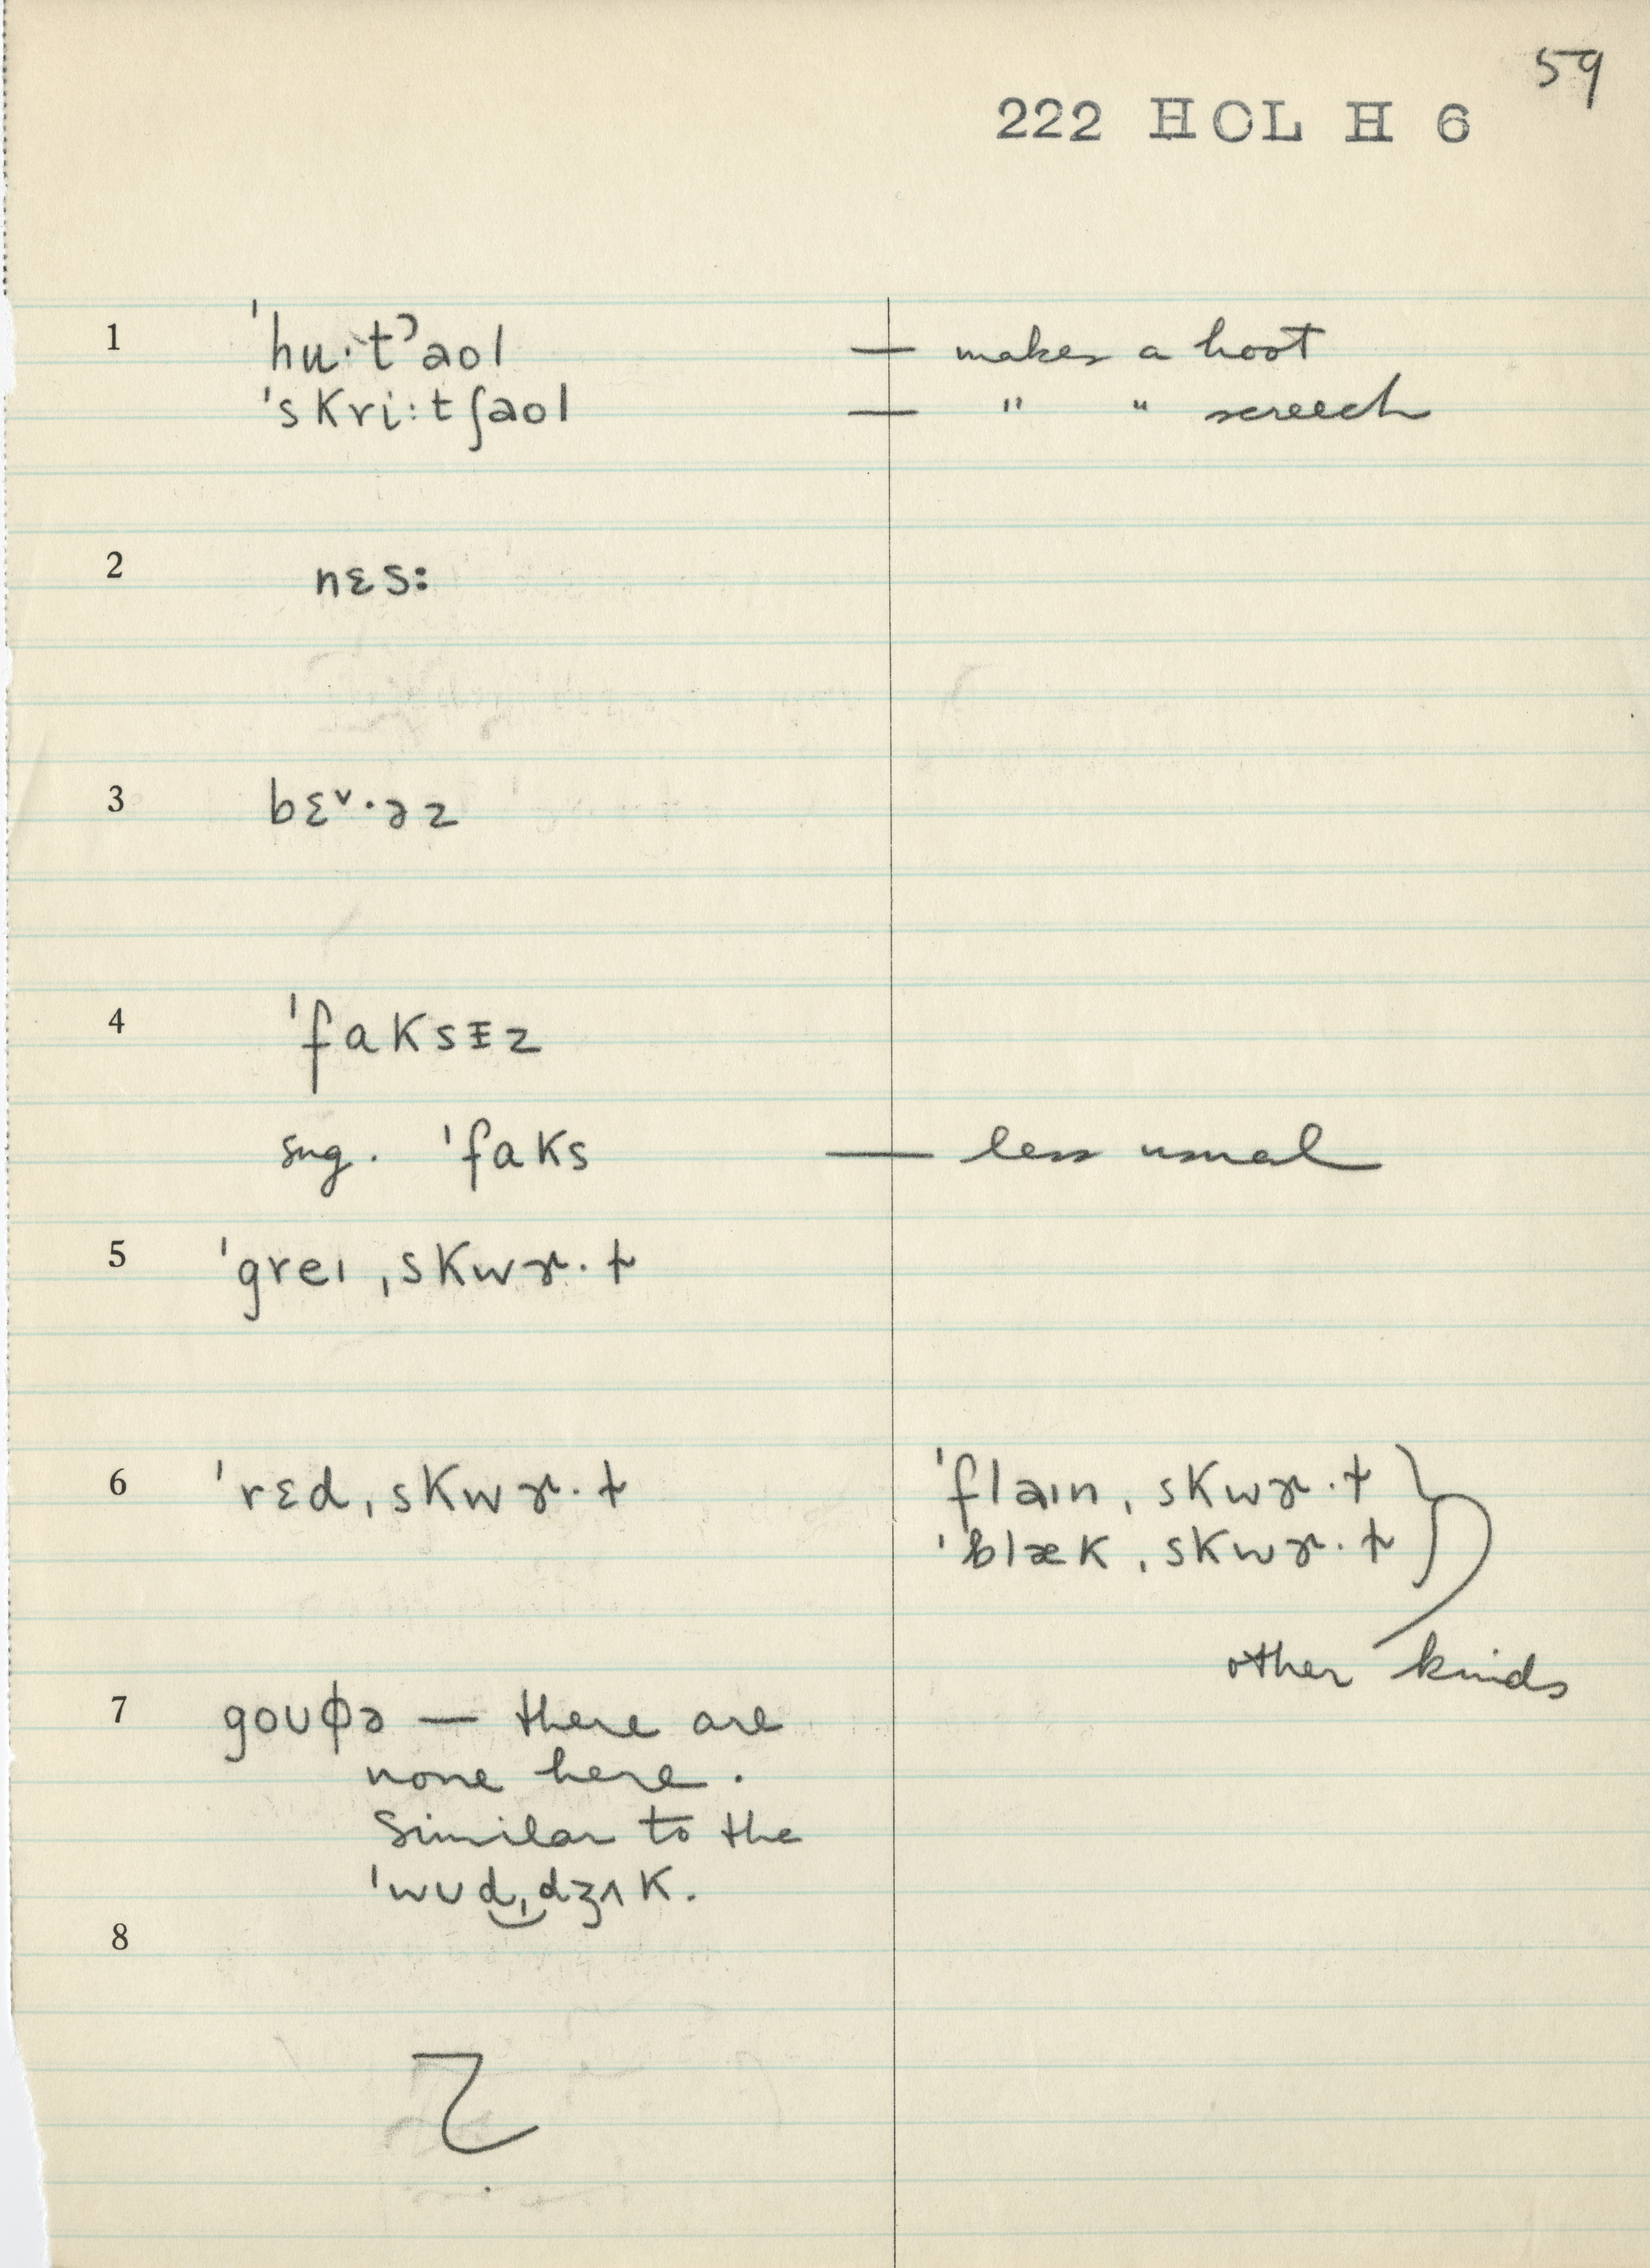 59
222 HOL H 6
1 ˈhu·tʔaol — makes a hoot
ˈskri:tʃaol — " " screech
2 nɛs:
3 bɛ˅·əz
4 ˈfaksɪz
sng. ˈfaks — less usual
5 ˈgreɪˌskwɚ·ɫ
6 ˈrɛdˌskwɚ·ɫ ˈflaɪnˌskwɚ·ɫ
ˈblækˌskwɚ·ɫ
other kinds
7 goʊɸə — there are
none here.
Similar to the
ˈwʊd‿ˌdʒʌk.
8